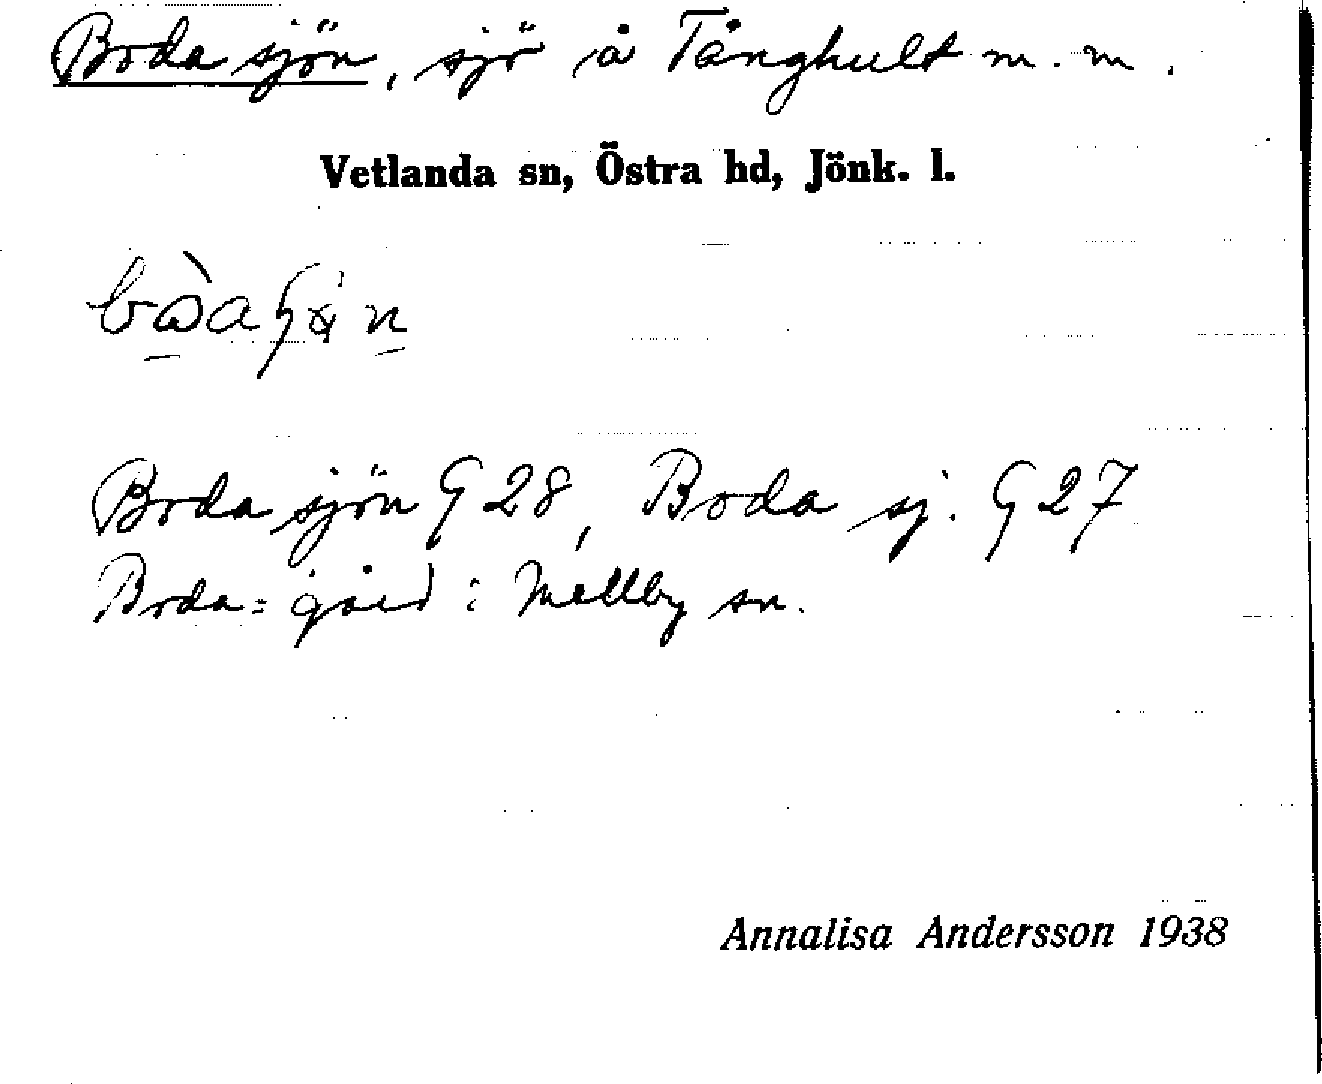 Boda sjön, sjö å Tånghult m. m.
Vetlanda sn, Östra hd, Jönk. l.
Boda sjön G 28, Boda sj. G 27
Boda = gård i Mellby sn.
Annalisa Andersson 1938